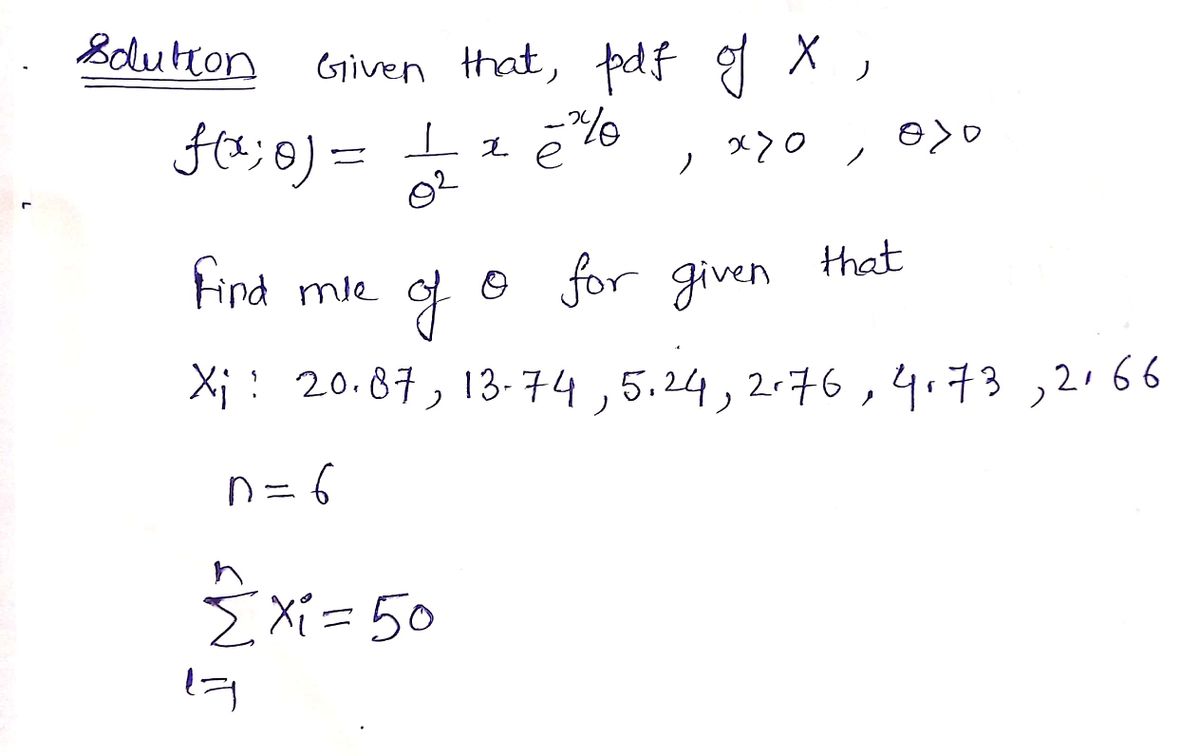 Solution Given that, pdf of X,
f(x;θ) = 1/θ² x e^(-x/θ) , x>0 , θ>0
Find mle of θ for given that
Xi : 20.87, 13.74, 5.24, 2.76, 4.73, 2.66
n=6
n
Σ Xi = 50
i=1